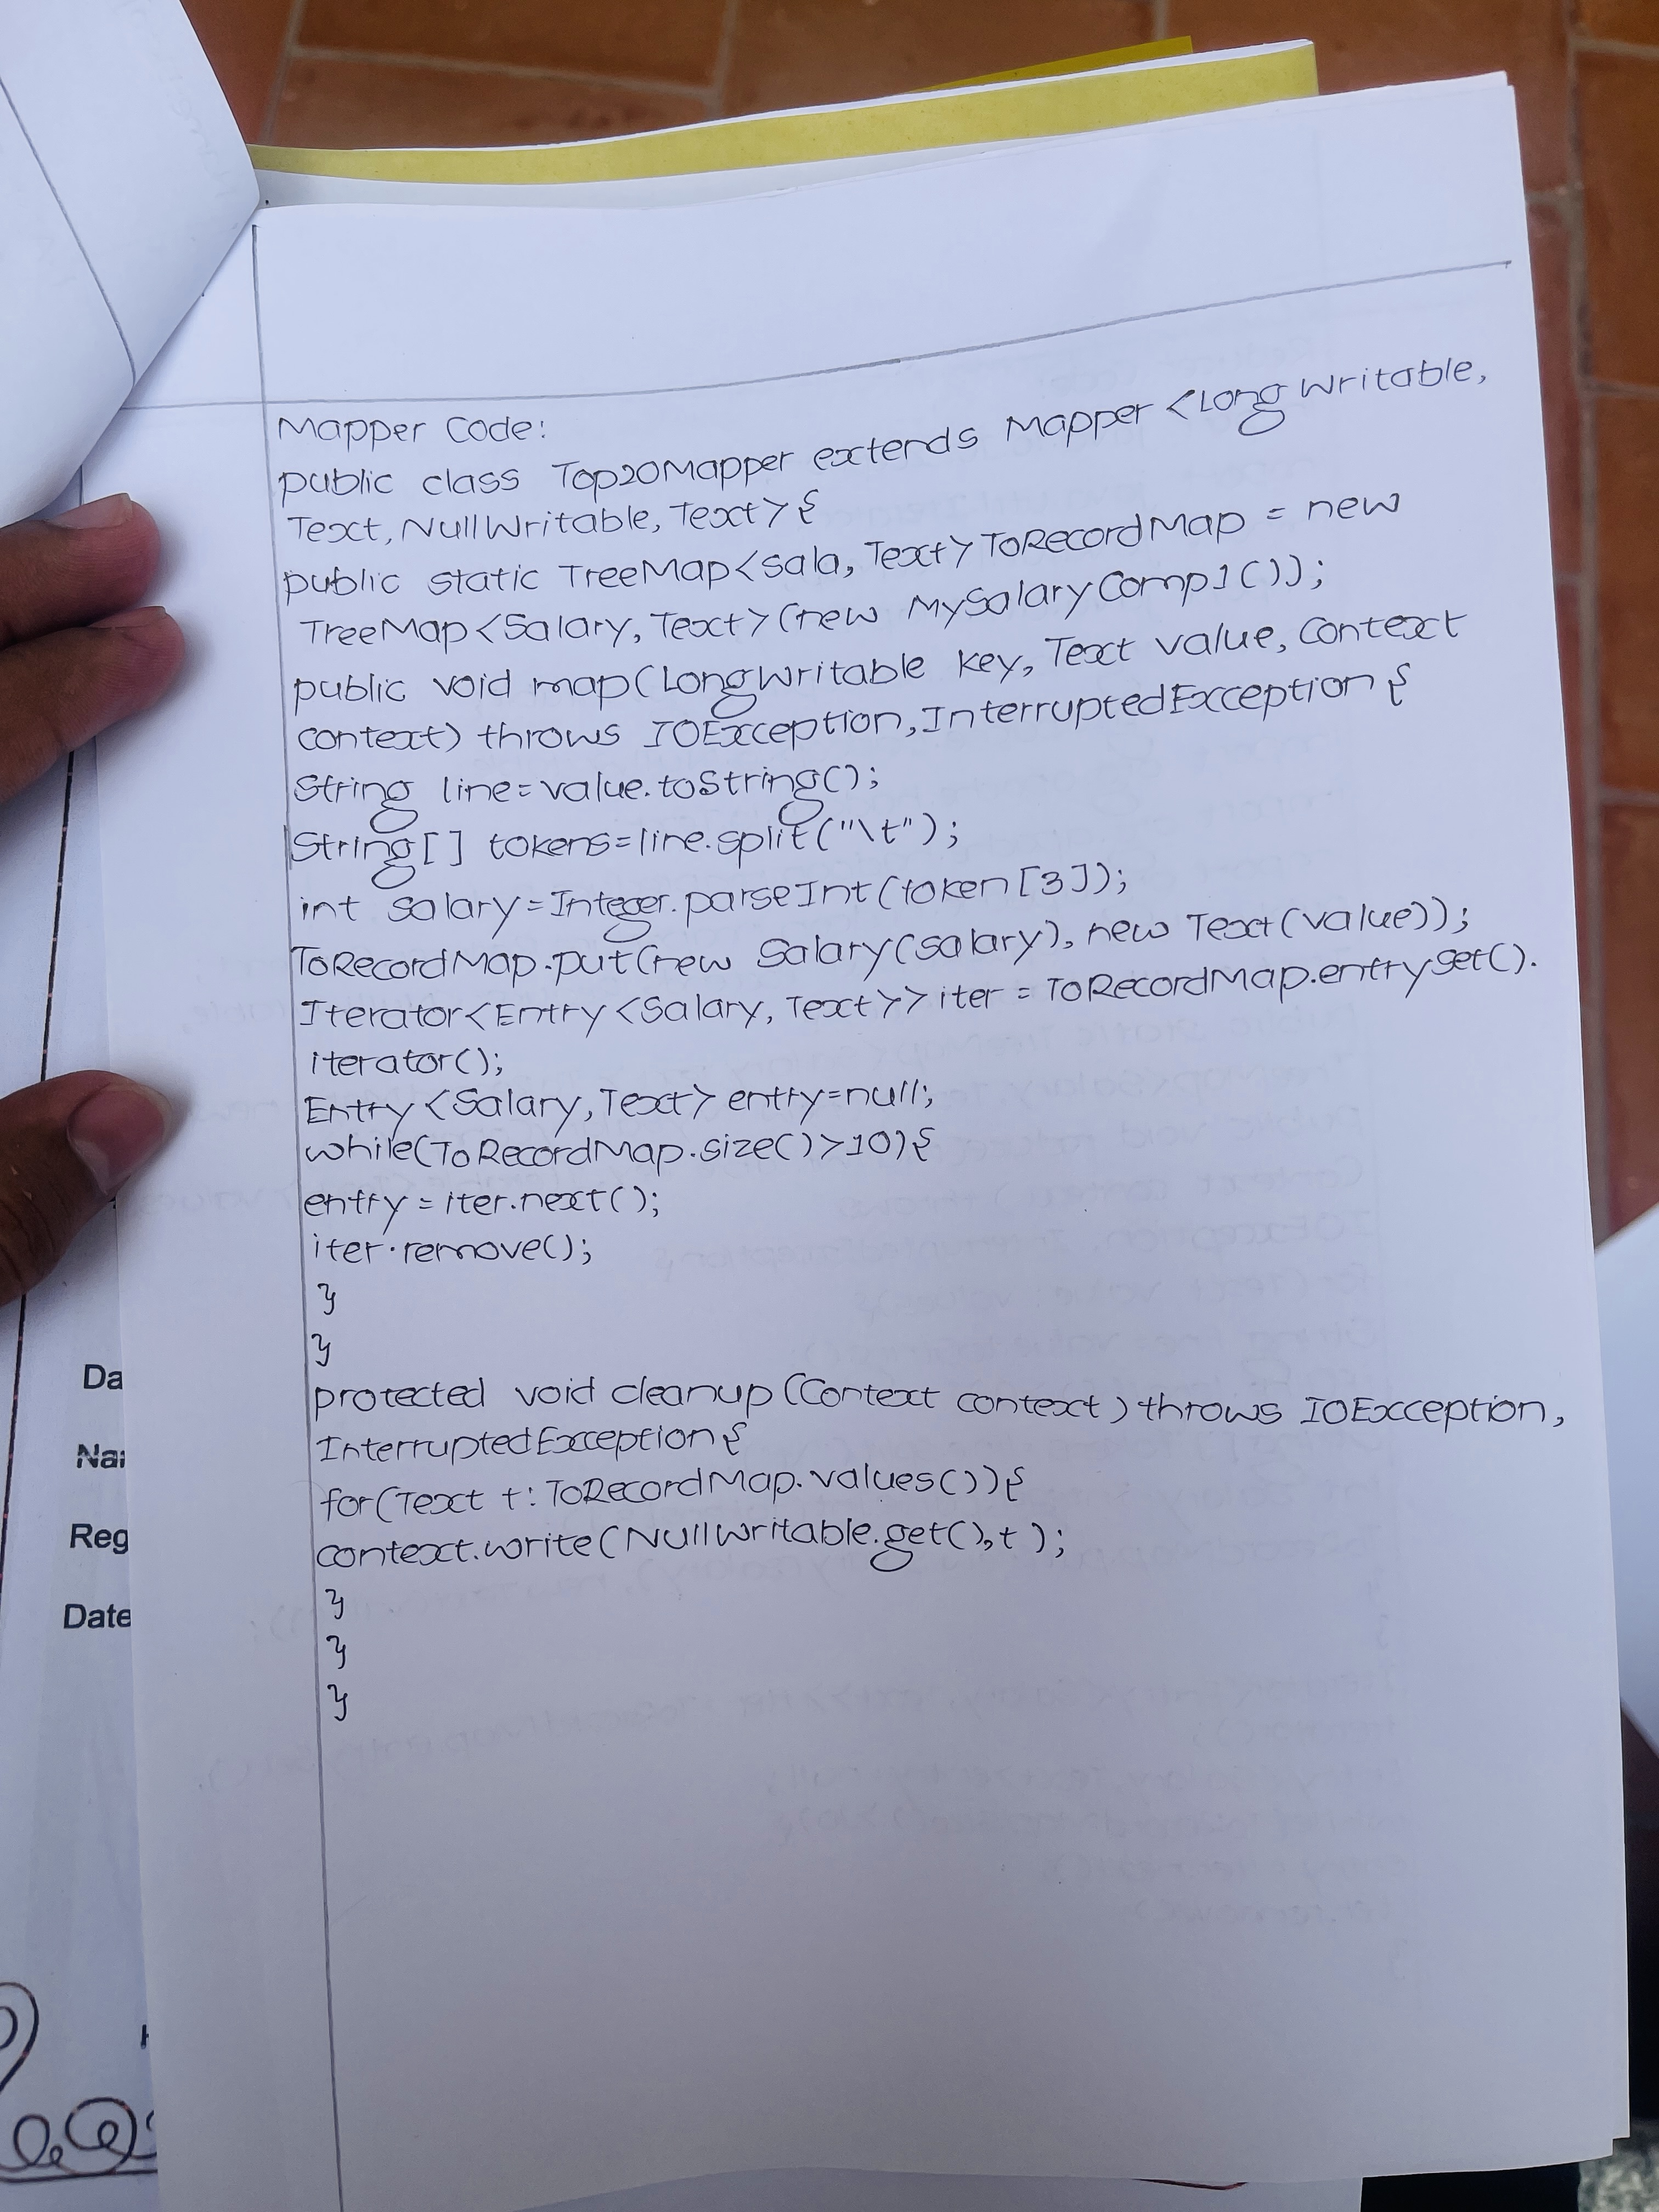 Mapper Code:
public class Top20Mapper extends Mapper <LongWritable,
Text, NullWritable, Text>{
public static TreeMap<sala, Text> ToRecordMap = new
TreeMap<Salary, Text>(new MySalaryComp1());
public void map(LongWritable key, Text value, Context
context) throws IOException, InterruptedException{
String line=value.toString();
String[] tokens=line.split("\t");
int salary=Integer.parseInt(token[3]);
ToRecordMap.put(new Salary(salary), new Text(value));
Iterator<Entry<Salary, Text>> iter = ToRecordMap.entryset().
iterator();
Entry<Salary, Text> entry=null;
while(ToRecordMap.size()>10){
entry = iter.next();
iter.remove();
}
}
protected void cleanup(Context context) throws IOException,
InterruptedException{
for(Text t: ToRecordMap.values()){
context.write(NullWritable.get(), t);
}
}
}
Da
Nar
Reg
Date